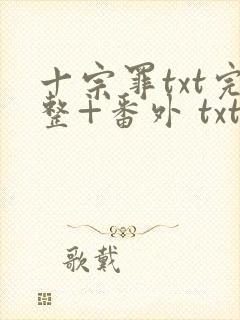 十宗罪txt完
整+番外 txt
歌戴